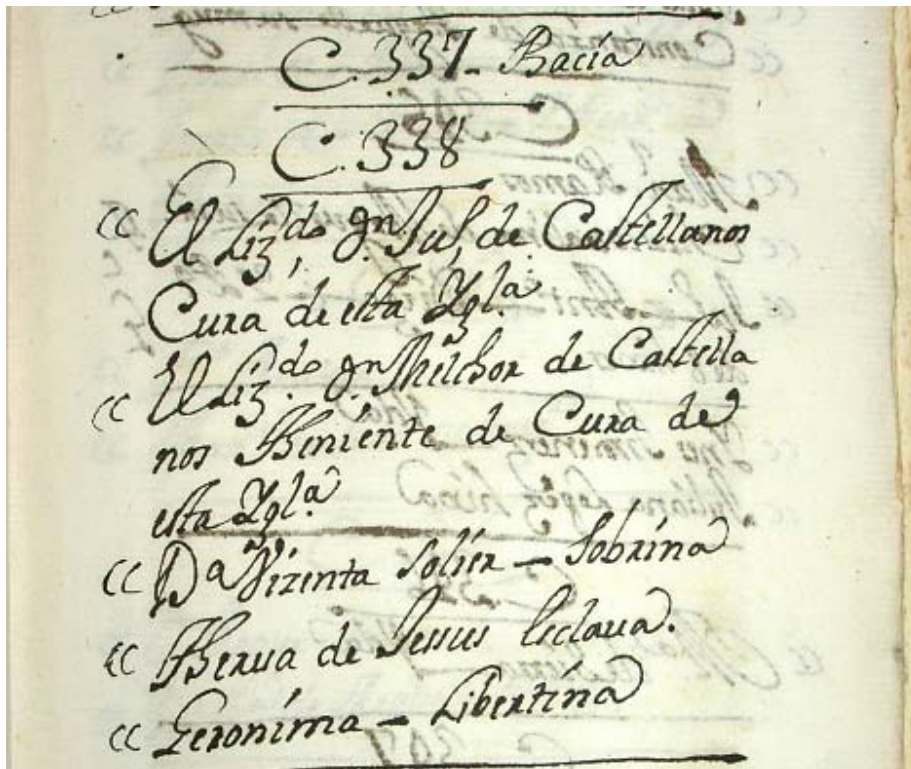 C. 337 - Bacía
C. 338
CC El Lizdo, Dn Jul, de Castellanos
Cura de esta Ygla.
CC El Lizdo. Dn Melchor de Castella
nos Theniente de Cura de
esta Ygla.
CC Da Vizenta Solier - Sobrina
CC de Jesus Esclava.
CC Geronima - Libertina